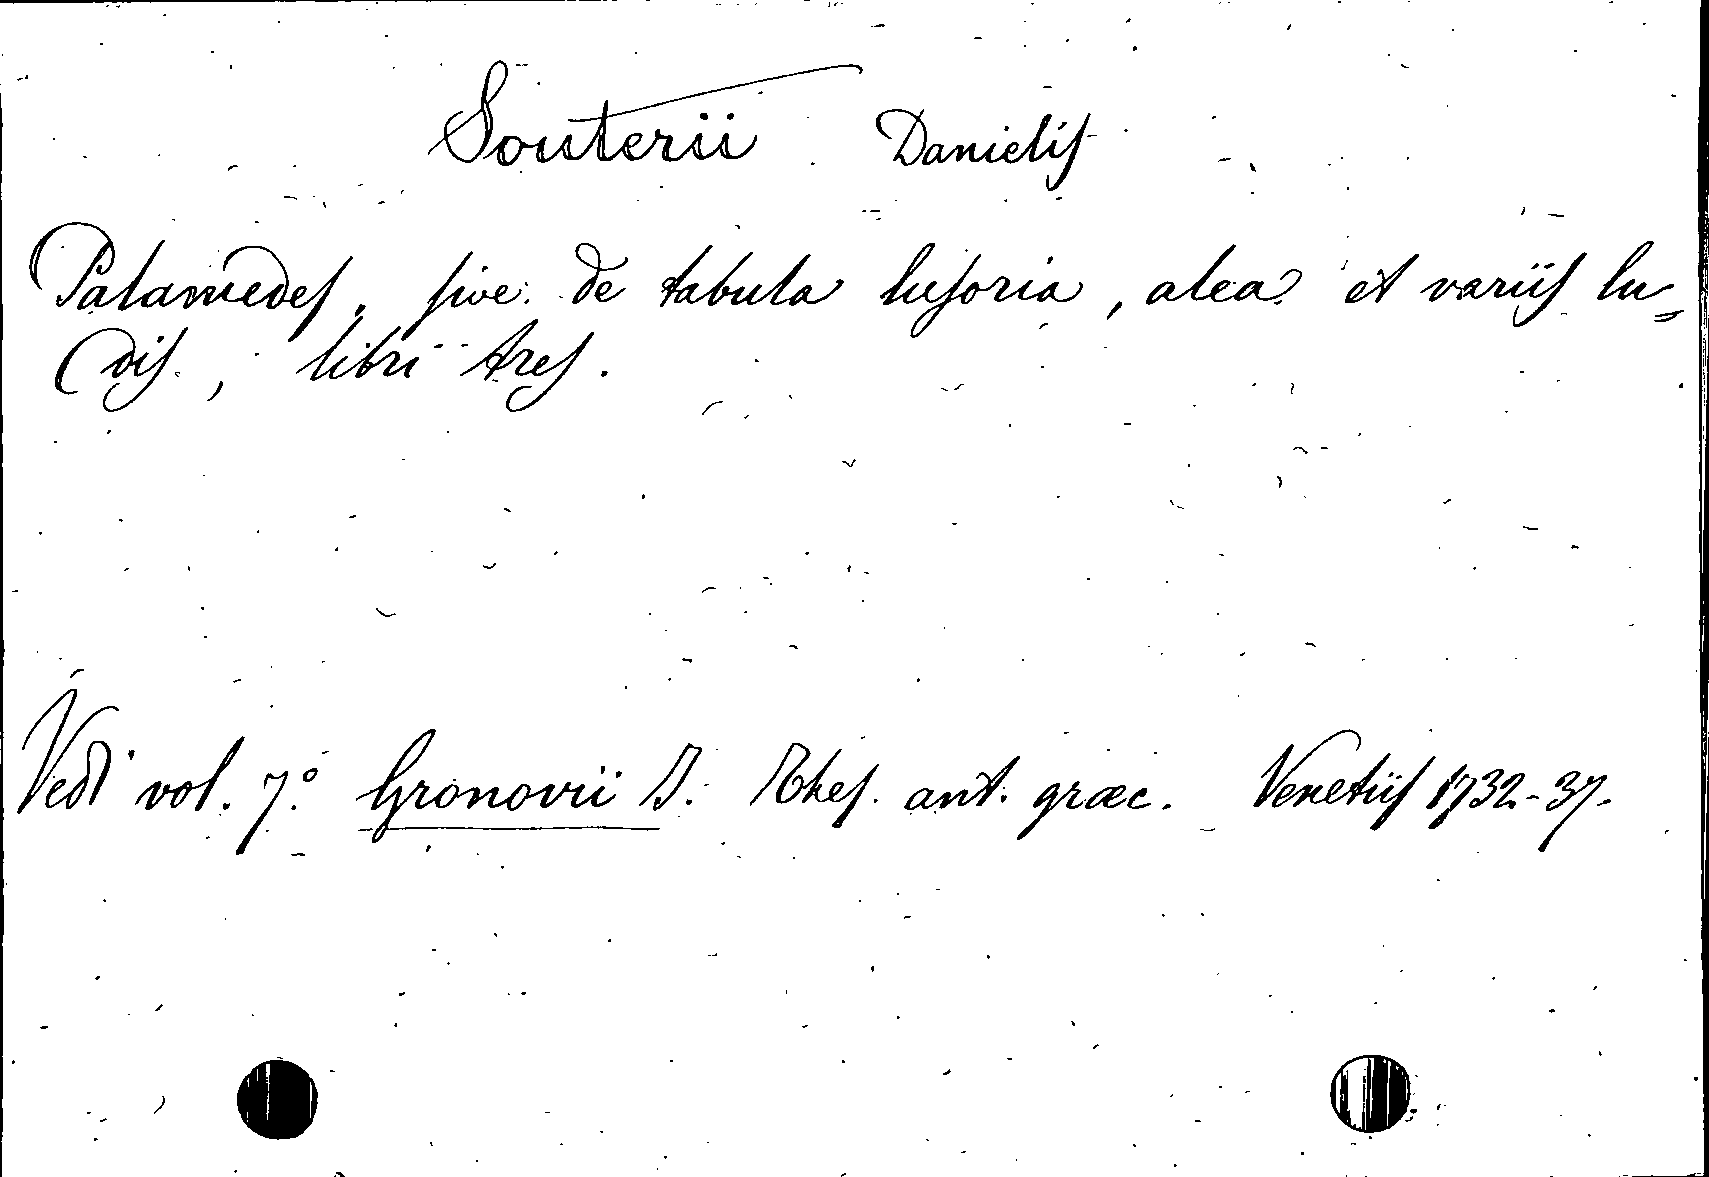 Souterii Danielis
Palamedes, sive de tabula lusoria, alea et variis lu=
dis, libri tres.
Vedi vol. 7.º Gronovii J. Thes. ant. græc. Venetiis 1732-37.